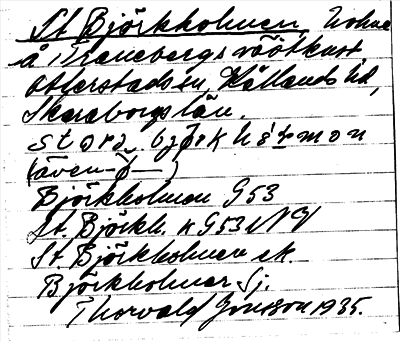 St. Björkholmen, holme
å Traneberg
Otterstads sn, Kållands hd,
Skaraborgs län.
stora
(även
Björkholmen G53
St. Björkh. n G53 NV
St. Björkholmen ek.
Björkholmar Sj.
Thorvald Jonsson 1935.